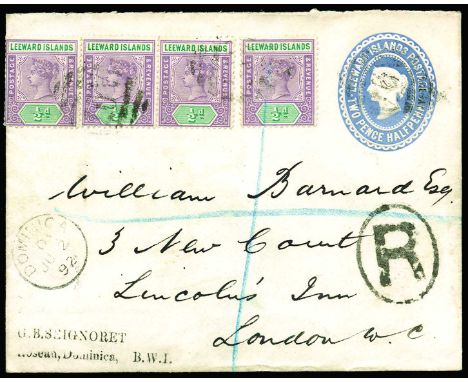 LEEWARD ISLANDS LEEWARD ISLANDS LEEWARD ISLANDS LEEWARD ISLANDS
POSTAGE & REVENUE POSTAGE & REVENUE POSTAGE & REVENUE POSTAGE & REVENUE
½d ½d ½d ½d
LEEWARD ISLANDS
TWO PENCE HALFPENNY
William Barnard Esq.
3 New Court
Lincoln's Inn
London W.C.
R
DOMINICA
JU 2
92
G.B.SEIGNORET
Roseau, Dominica, B.W.I.